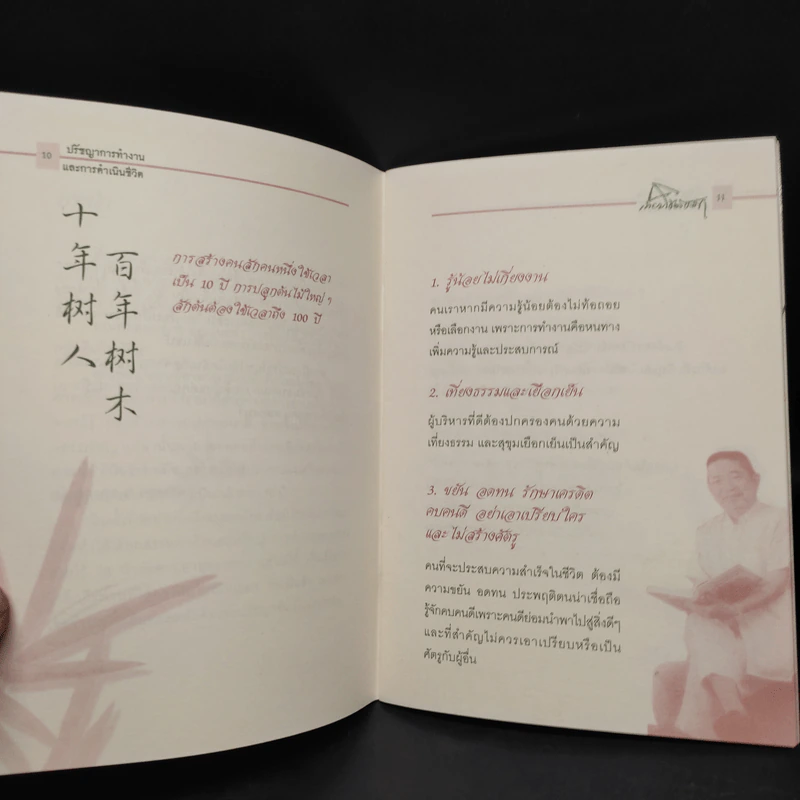 10
ปรัชญาการทำงาน
และการดำเนินชีวิต
十年树人
百年树木
การสร้างคนสักคนหนึ่งใช้เวลา
เป็น 10 ปี การปลูกต้นไม้ใหญ่ๆ
สักต้นต้องใช้เวลาถึง 100 ปี
11
1. รู้น้อยไม่เกี่ยงงาน
คนเราหากมีความรู้น้อยต้องไม่ท้อถอย
หรือเลือกงาน เพราะการทำงานคือหนทาง
เพิ่มความรู้และประสบการณ์
2. เที่ยงธรรมและเยือกเย็น
ผู้บริหารที่ดีต้องปกครองคนด้วยความ
เที่ยงธรรม และสุขุมเยือกเย็นเป็นสำคัญ
3. ขยัน อดทน รักษาเครดิต
คบคนดี อย่าเอาเปรียบใคร
และไม่สร้างศัตรู
คนที่จะประสบความสำเร็จในชีวิต ต้องมี
ความขยัน อดทน ประพฤติตนน่าเชื่อถือ
รู้จักคบคนดีเพราะคนดีย่อมนำพาไปสู่สิ่งดีๆ
และที่สำคัญไม่ควรเอาเปรียบหรือเป็น
ศัตรูกับผู้อื่น